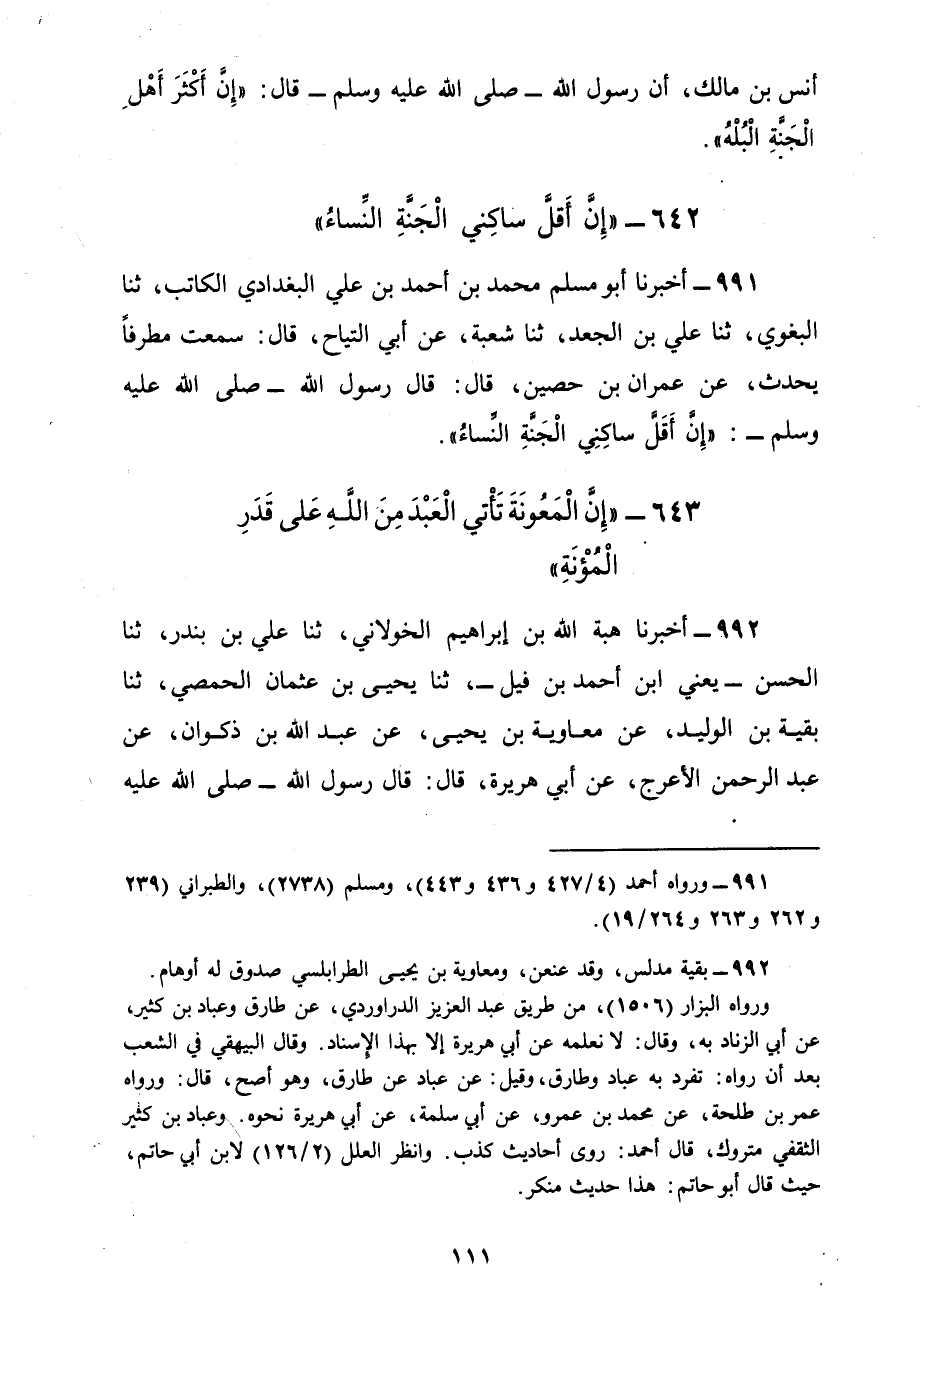 أنس بن مالك، أن رسول الله ــ صلى الله عليه وسلم ــ قال: «إِنَّ أَكْثَرَ أَهْلِ
الْجَنَّةِ الْبُلْهُ».
٦٤٢ ــ «إِنَّ أَقلَّ ساكِني الْجَنَّةِ النِّساءُ»
٩٩١ ــ أخبرنا أبو مسلم محمد بن أحمد بن علي البغدادي الكاتب، ثنا
البغوي، ثنا علي بن الجعد، ثنا شعبة، عن أبي التياح، قال: سمعت مطرفاً
يحدث، عن عمران بن حصين، قال: قال رسول الله ــ صلى الله عليه
وسلم ــ : «إِنَّ أَقَلَّ ساكِنِي الْجَنَّةِ النِّساءُ».
٦٤٣ ــ «إِنَّ الْمَعُونَةَ تَأْتي الْعَبْدَ مِنَ اللَّهِ عَلى قَدَرِ
الْمُؤْنَةِ»
٩٩٢ ــ أخبرنا هبة الله بن إبراهيم الخولاني، ثنا علي بن بندر، ثنا
الحسن ــ يعني ابن أحمد بن فيل ــ، ثنا يحيى بن عثمان الحمصي، ثنا
بقية بن الوليد، عن معاوية بن يحيى، عن عبد الله بن ذكوان، عن
عبد الرحمن الأعرج، عن أبي هريرة، قال: قال رسول الله ــ صلى الله عليه
٩٩١ ــ ورواه أحمد (٤/٤٢٧ و ٤٣٦ و ٤٤٣)، ومسلم (٢٧٣٨)، والطبراني (٢٣٩
و ٢٦٢ و ٢٦٣ و ١٩/٢٦٤).
٩٩٢ ــ بقية مدلس، وقد عنعن، ومعاوية بن يحيى الطرابلسي صدوق له أوهام.
ورواه البزار (١٥٠٦)، من طريق عبد العزيز الدراوردي، عن طارق وعباد بن كثير،
عن أبي الزناد به، وقال: لا نعلمه عن أبي هريرة إلا بهذا الإسناد. وقال البيهقي في الشعب
بعد أن رواه: تفرد به عباد وطارق، وقيل: عن عباد عن طارق، وهو أصح، قال: ورواه
عمر بن طلحة، عن محمد بن عمرو، عن أبي سلمة، عن أبي هريرة نحوه. وعباد بن كثير
الثقفي متروك، قال أحمد: روى أحاديث كذب. وانظر العلل (٢/١٢٦) لابن أبي حاتم،
حيث قال أبو حاتم: هذا حديث منكر.
١١١